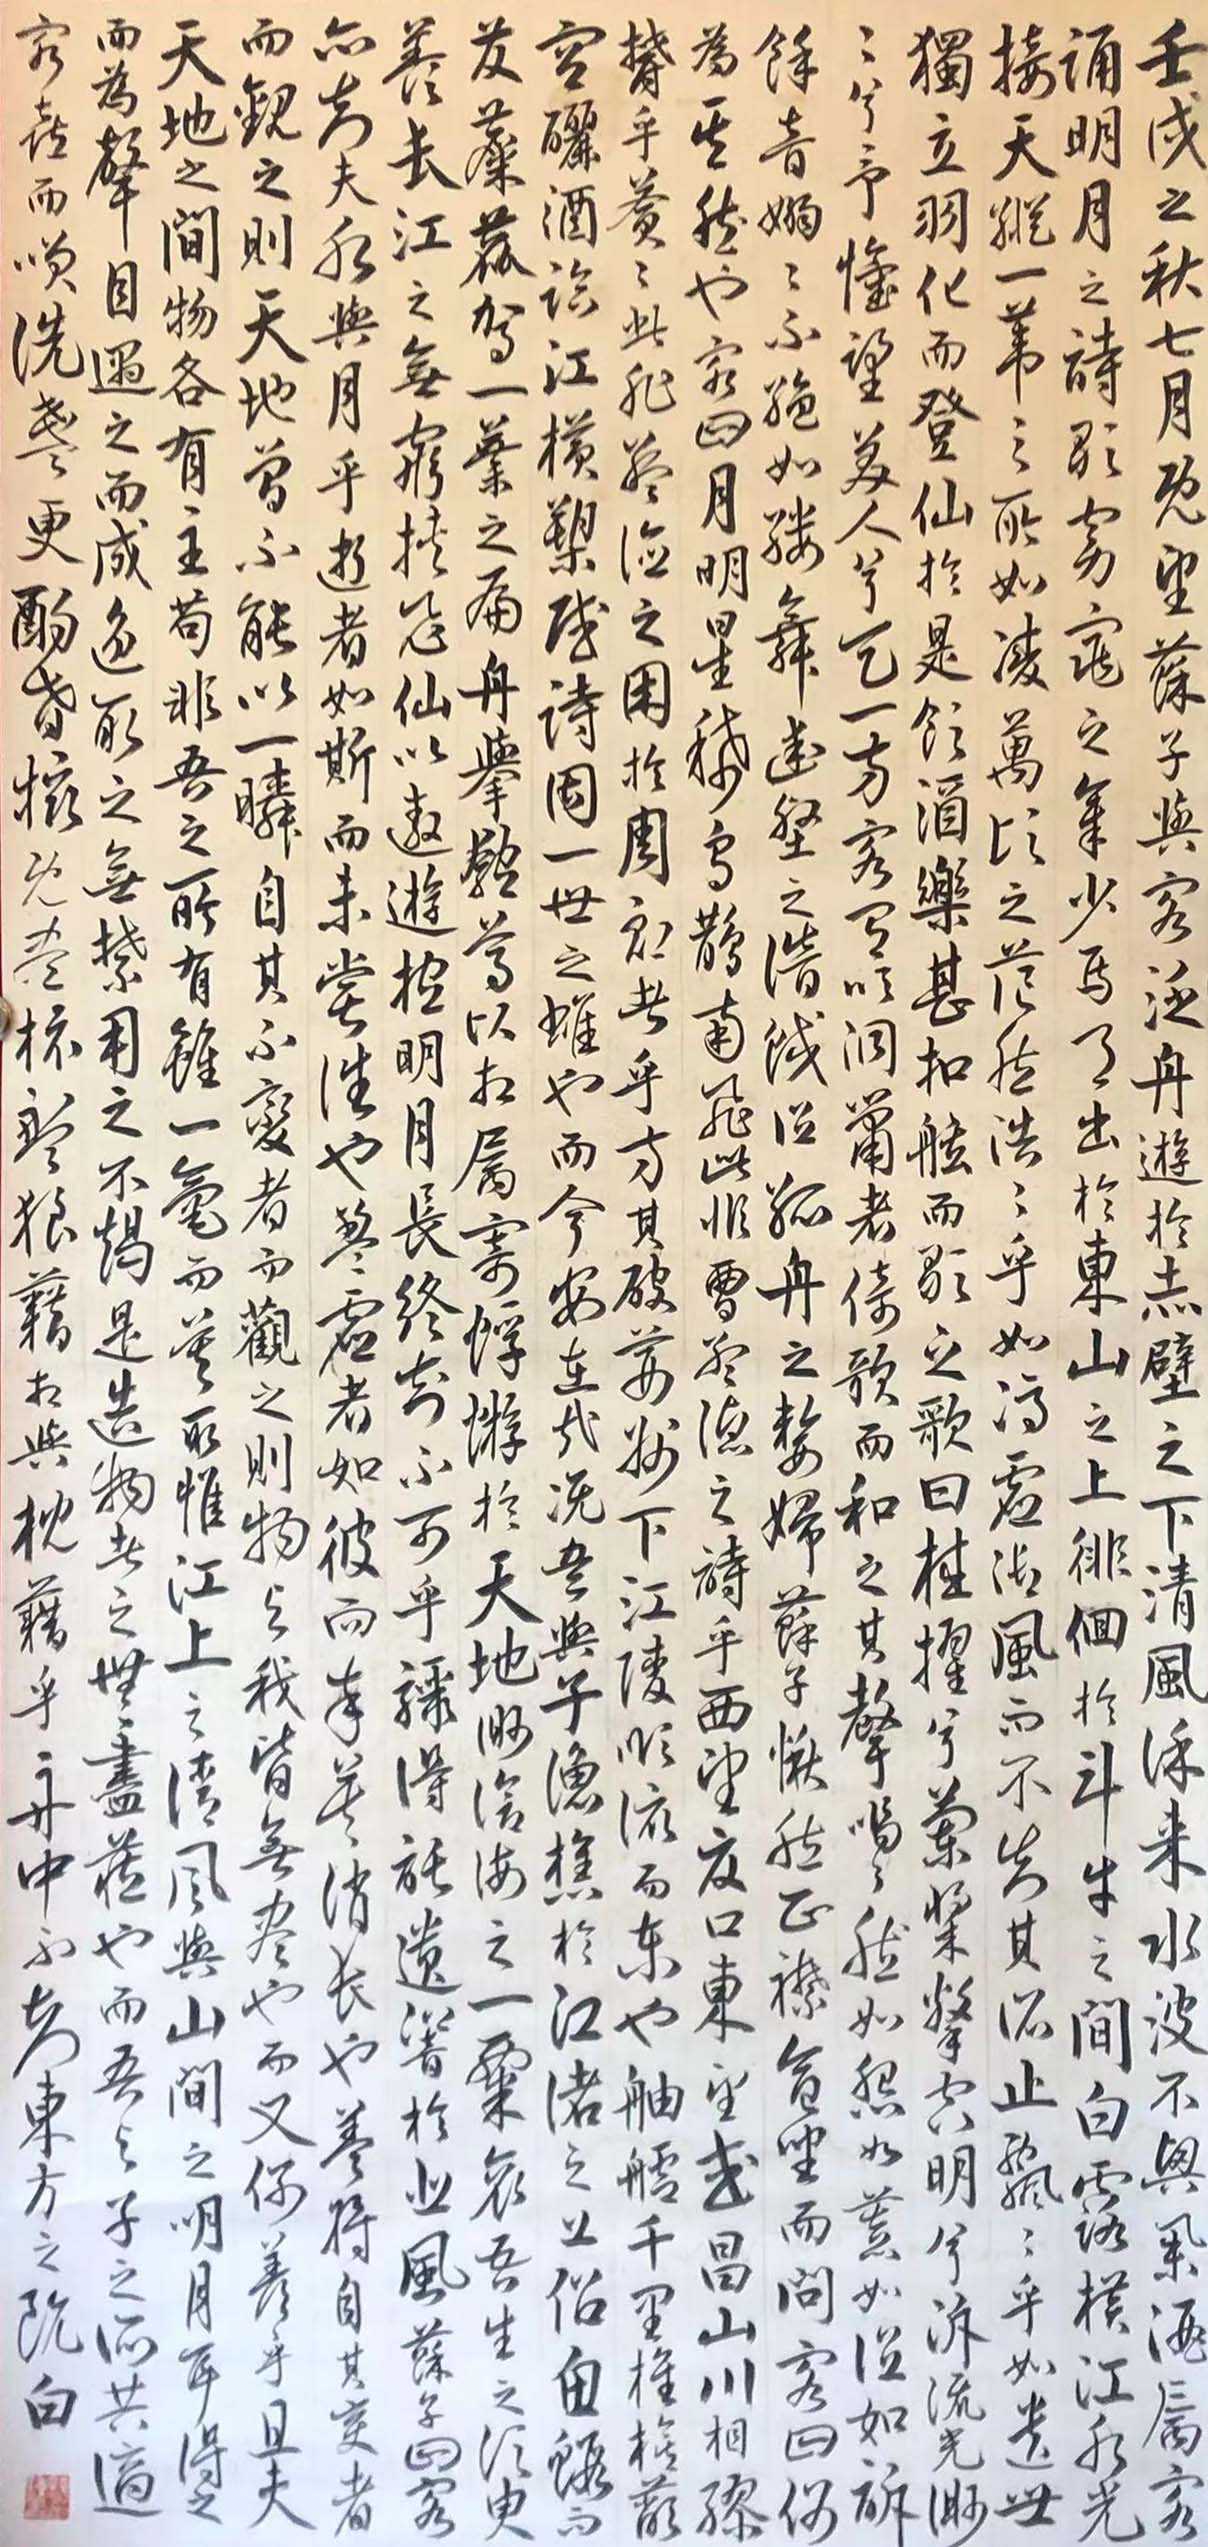 壬戌之秋七月既望蘇子與客泛舟遊於赤壁之下清風徐来水波不興舉酒属客
誦明月之詩歌窈窕之章少焉月出於東山之上徘徊於斗牛之間白露横江水光
接天縱一葦之所如凌萬頃之茫然浩々乎如馮虚御風而不知其所止飄々乎如遺世
獨立羽化而登仙於是飲酒樂甚扣舷而歌之歌曰桂擢兮蘭槳擊空明兮泝流光渺
々兮予懷望美人兮天一方客有吹洞簫者倚歌而和之其聲嗚々然如怨如慕如泣如訴
餘音嫋々不絶如縷舞幽壑之潛蛟泣孤舟之嫠婦蘇子愀然正襟危坐而問客曰何
為其然也客曰月明星稀烏鵲南飛此非曹孟德之詩乎西望夏口東望武昌山川相繆
鬱乎蒼々此非孟德之困於周郎者乎方其破荆州下江陵順流而东也舳艫千里旌旗蔽
空釃酒臨江横槊賦詩固一世之雄也而今安在哉况吾與子漁樵於江渚之上侣魚鰕而
友麋鹿駕一葉之扁舟舉匏尊以相属寄蜉蝣於天地渺滄海之一粟哀吾生之須臾
羨长江之無窮挟飛仙以遨遊抱明月長終知不可乎驟得託遺響於悲風蘇子曰客
亦知夫水與月乎逝者如斯而未嘗往也盈虚者如彼而卒莫消长也蓋将自其变者
而觀之則天地曾不能以一瞬自其不變者而觀之則物与我皆無尽也而又何羨乎且夫
天地之間物各有主苟非吾之所有雖一毫而莫取惟江上之清风與山間之明月耳得之
而為聲目遇之而成色取之無禁用之不竭是造物者之無盡藏也而吾与子之所共適
客喜而笑洗盞更酌肴核既尽杯盤狼藉相與枕藉乎舟中不知東方之既白